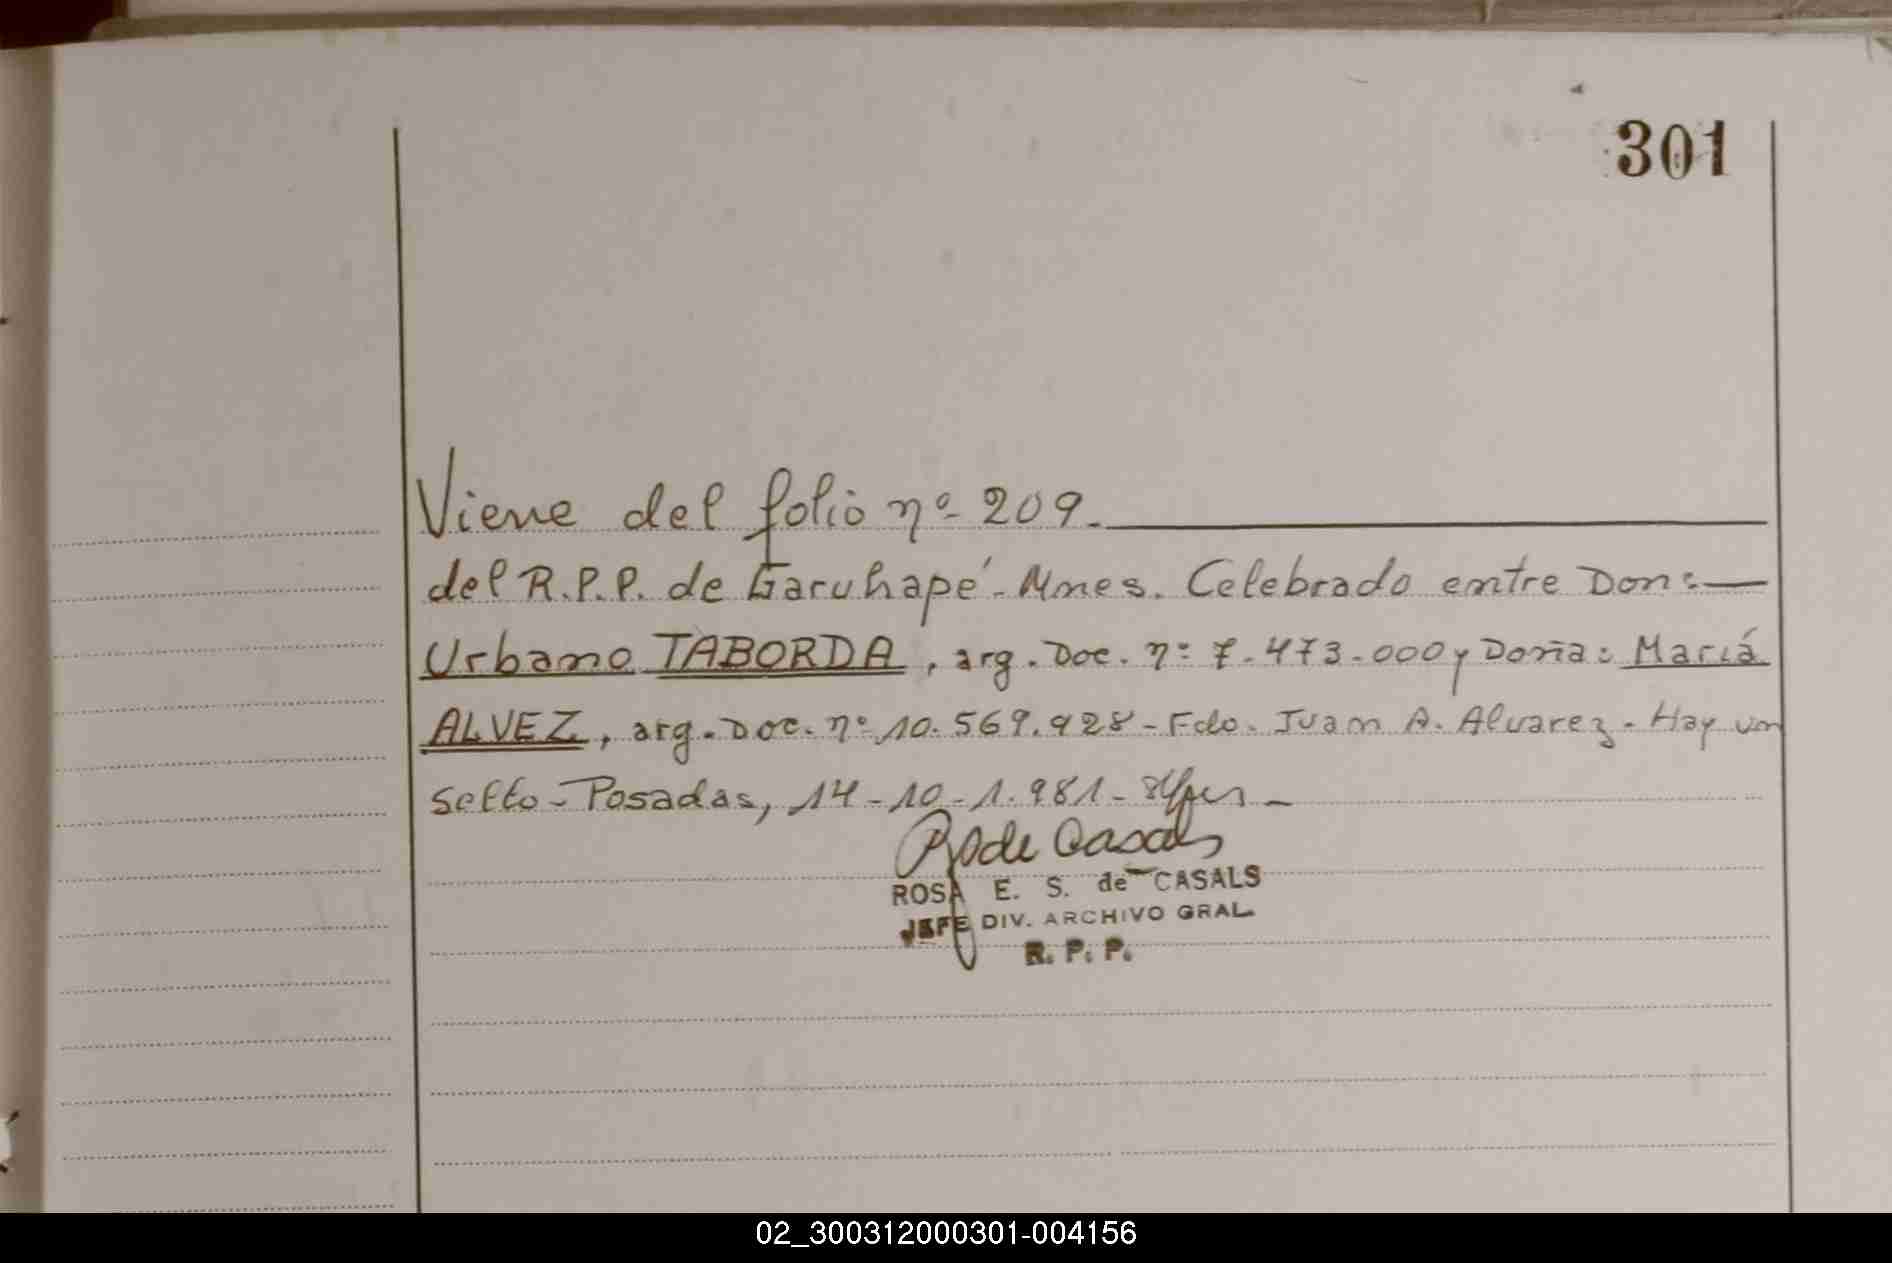 301
Viene del folio nº 209.
del R.P.P. de Garuhapé - Mnes. Celebrado entre Don:
Urbano TABORDA, arg. Doc. nº 7.473.000 y Doña: Mariá
ALVEZ, arg. Doc. nº 10.569.928 - Fdo. Juan A. Alvarez - Hay un
sello - Posadas, 14-10-1.981 -
R de Casals
ROSA E. S. de CASALS
JEFE DIV. ARCHIVO GRAL.
R. P. P.
02_300312000301-004156